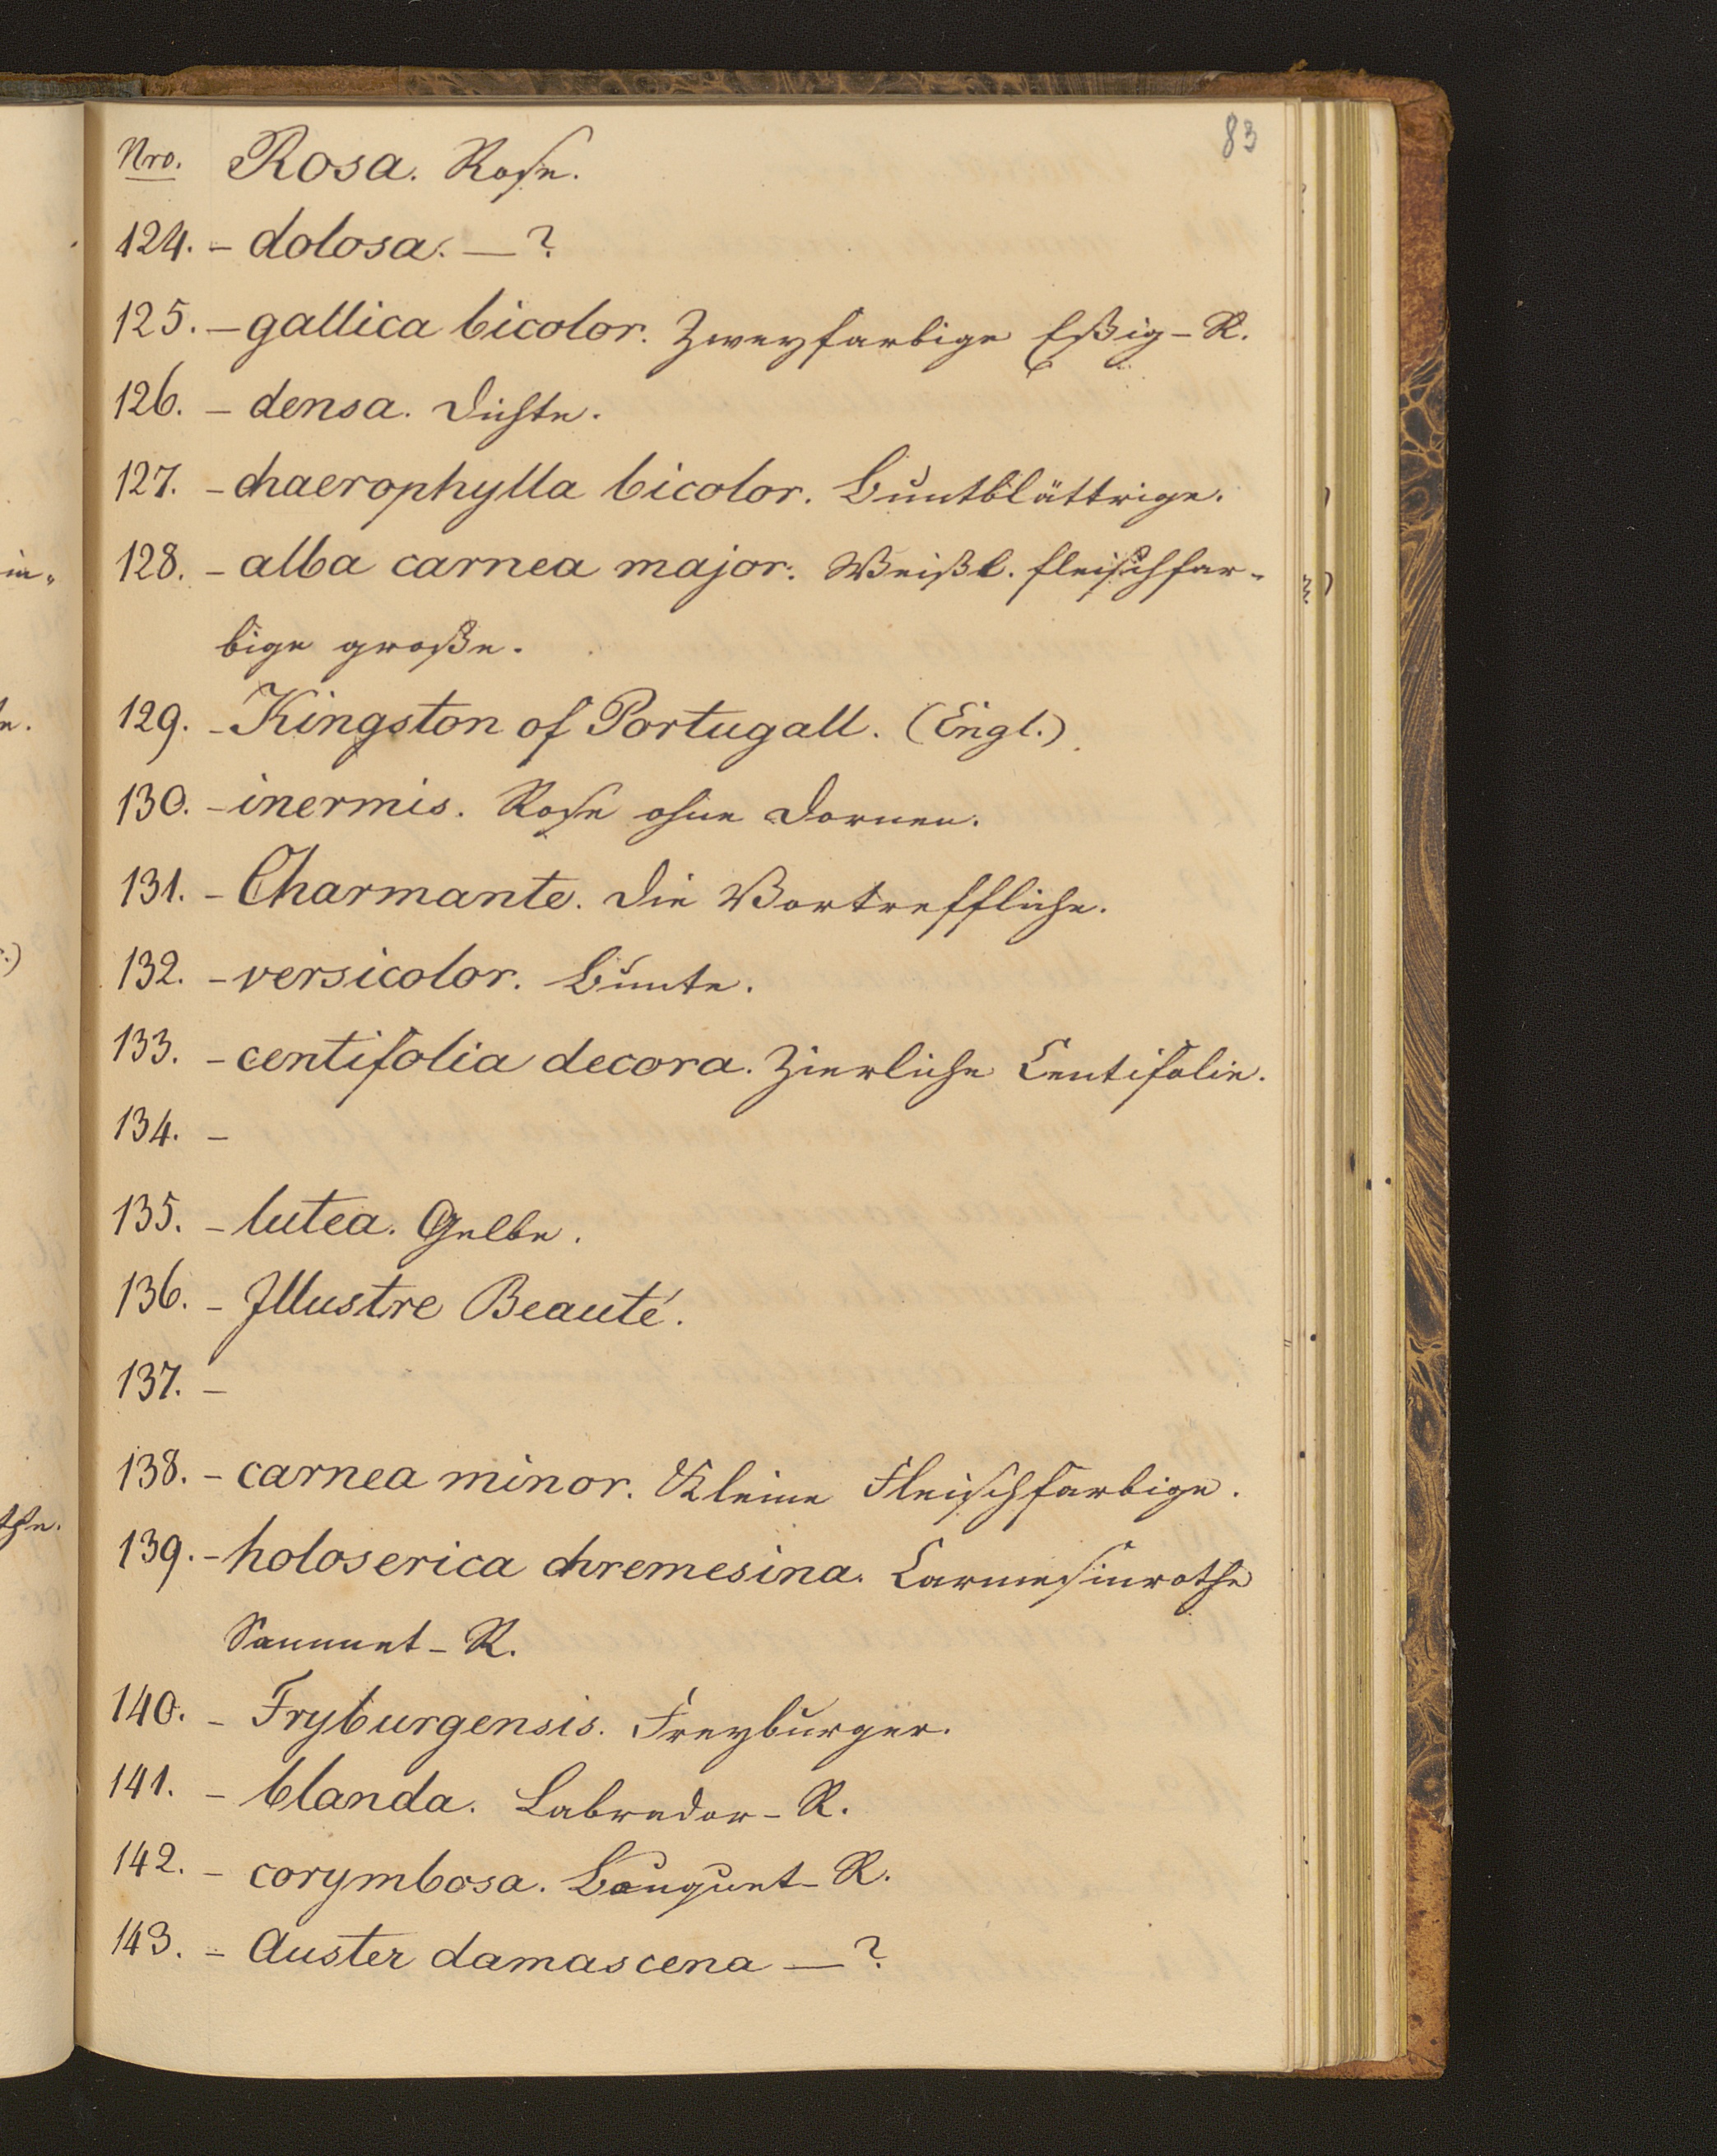 83
Nro. Rosa. Rose.
124. – dolosa. — ?
125. – gallica bicolor. Zweyfarbige Eßig-R.
126. – densa. Dichte.
127. – chaerophylla bicolor. Buntblättrige.
128. – alba carnea major. Weißl. fleischfar-
bige große.
129. – Kingston of Portugall. (Engl.)
130. – inermis. Rose ohne Dornen.
131. – Charmante. Die Vortreffliche.
132. – versicolor. Bunte.
133. – centifolia decora. Zierliche Centifolie.
134. –
135. – lutea. Gelbe.
136. – Illustre Beauté.
137. –
138. – carnea minor. Kleine Fleischfarbige.
139. – holoserica chremesina. Carmesinrothe
Sammet-R.
140. – Fryburgensis. Freyburger.
141. – blanda. Labrador-R.
142. – corymbosa. Bouquet-R.
143. – Auster damascena — ?